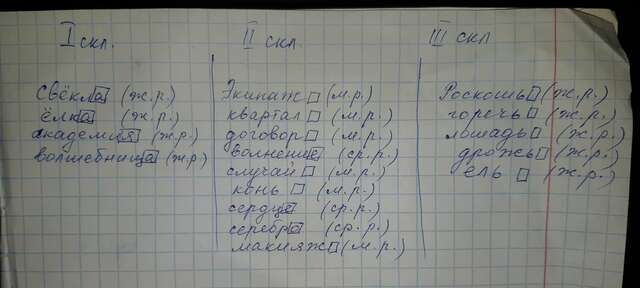 I скл.
Свёкла (ж.р.)
ёлка (ж.р.)
академия (ж.р.)
волшебница (ж.р)
II скл
Экипаж (м.р.)
квартал (м.р.)
договор (м.р.)
волнение (ср.р.)
случай (м.р.)
конь (м.р.)
сердце (ср.р.)
серебро (ср.р.)
макияж (м.р.)
III скл
Роскошь (ж.р.)
горечь (ж.р.)
лошадь (ж.р.)
дрожь (ж.р.)
ель (ж.р.)